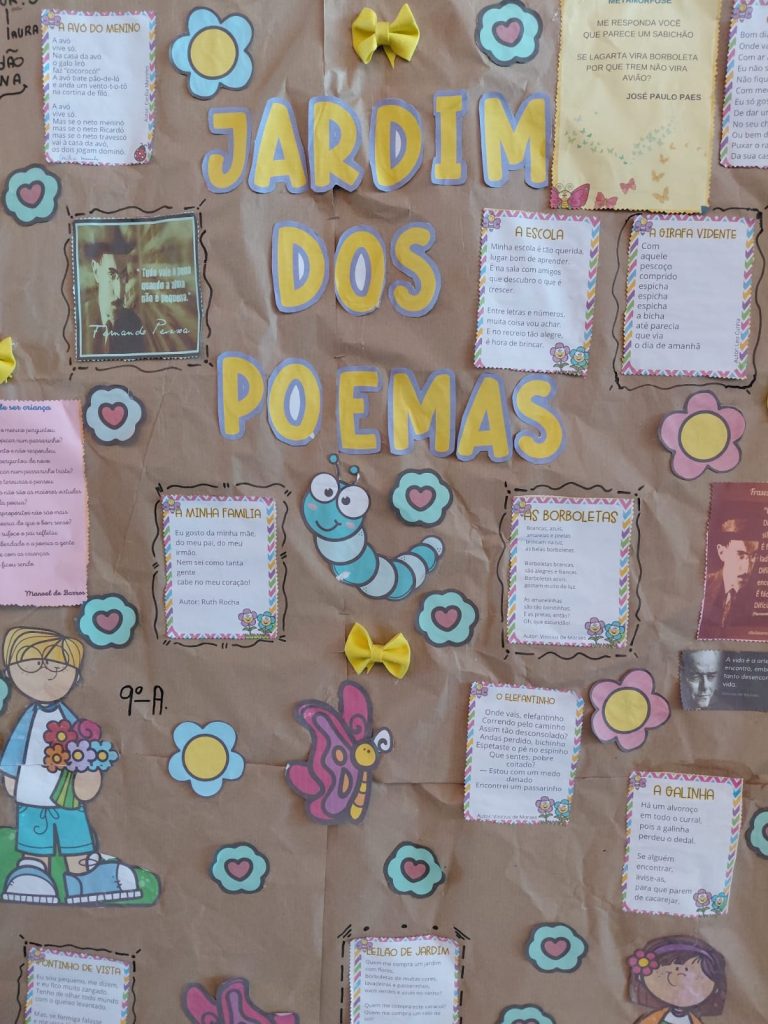 laura
A AVÓ DO MENINO
A avó
vive só.
Na casa da avó
o galo liró
faz "cocorocó!"
A avó bate pão-de-ló
e anda um vento-t-o-tó
na cortina de filó.
A avó
vive só.
Mas se o neto menino
mas se o neto Ricardo
mas se o neto travesso
vai à casa da avó,
os dois jogam dominó.
METAMORFOSE
ME RESPONDA VOCÊ
QUE PARECE UM SABICHÃO
SE LAGARTA VIRA BORBOLETA
POR QUE TREM NÃO VIRA
AVIÃO?
JOSÉ PAULO PAES
Bom dia
Onde va
Com ar
Eu não s
Não fique
Com me
Eu só gos
De dar um
No seu ch
Ou bem d
Puxar o ra
Da sua cas
JARDIM
DOS
POEMAS
"Tudo vale a pena
quando a alma
não é pequena."
Fernando Pessoa
A ESCOLA
Minha escola é tão querida,
lugar bom de aprender.
É na sala com amigos
que descubro o que é
crescer.
Entre letras e números,
muita coisa vou achar.
E no recreio tão alegre,
é hora de brincar.
A GIRAFA VIDENTE
Com
aquele
pescoço
comprido
espicha
espicha
espicha
a bicha
até parecia
que via
o dia de amanhã
de ser criança
o menino perguntou
Manoel de Barros
A MINHA FAMILIA
Eu gosto da minha mãe,
do meu pai, do meu
irmão.
Nem sei como tanta
gente
cabe no meu coração!
Autor: Ruth Rocha
AS BORBOLETAS
Brancas, azuis,
amarelas e pretas
brincam na luz,
as belas borboletas
Borboletas brancas,
são alegres e francas.
Borboletas azuis,
gostam muito de luz.
As amarelinhas
são tão bonitinhas,
E as pretas, então?
Oh, que escuridão!
Autor: Vinicius de Moraes
9º-A.
A vida é a arte
encontro, emb
tanto desencon
vida.
O ELEFANTINHO
Onde vais, elefantinho
Correndo pelo caminho
Assim tão desconsolado?
Andas perdido, bichinho
Espetaste o pé no espinho
Que sentes, pobre
coitado?
— Estou com um medo
danado
Encontrei um passarinho
Autor: Vinicius de Moraes
A GALINHA
Há um alvoroço
em todo o curral,
pois a galinha
perdeu o dedal.
Se alguém
encontrar,
avise-as,
para que parem
de cacarejar.
PONTINHO DE VISTA
Eu sou pequeno, me dizem,
e eu fico muito zangado.
Tenho de olhar todo mundo
com o queixo levantado.
Mas, se formiga falasse
LEILÃO DE JARDIM
Quem me compra um jardim
com flores,
borboletas de muitas cores,
lavadeiras e passarinhos,
ovos verdes e azuis no ninho?
Quem me compra este caracol?
Quem me compra um raio de
sol?